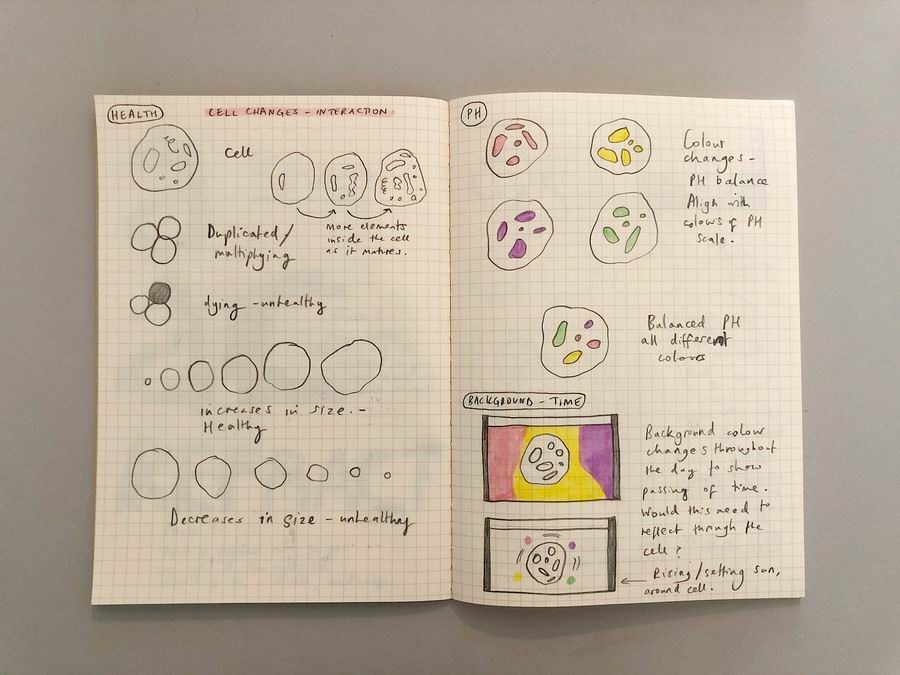 HEALTH
CELL CHANGES - INTERACTION
Cell
More elements
inside the cell
as it matures.
Duplicated/
multiplying
dying - unhealthy
increases in size. -
Healthy
Decreases in size - unhealthy
PH
Colour
changes -
PH balance
Align with
colours of PH
Scale.
Balanced PH
all different
colours
BACKGROUND - TIME
Background colour
changes throughout
the day to show
passing of time.
Would this need to
reflect through the
cell?
Rising/setting sun,
around cell.